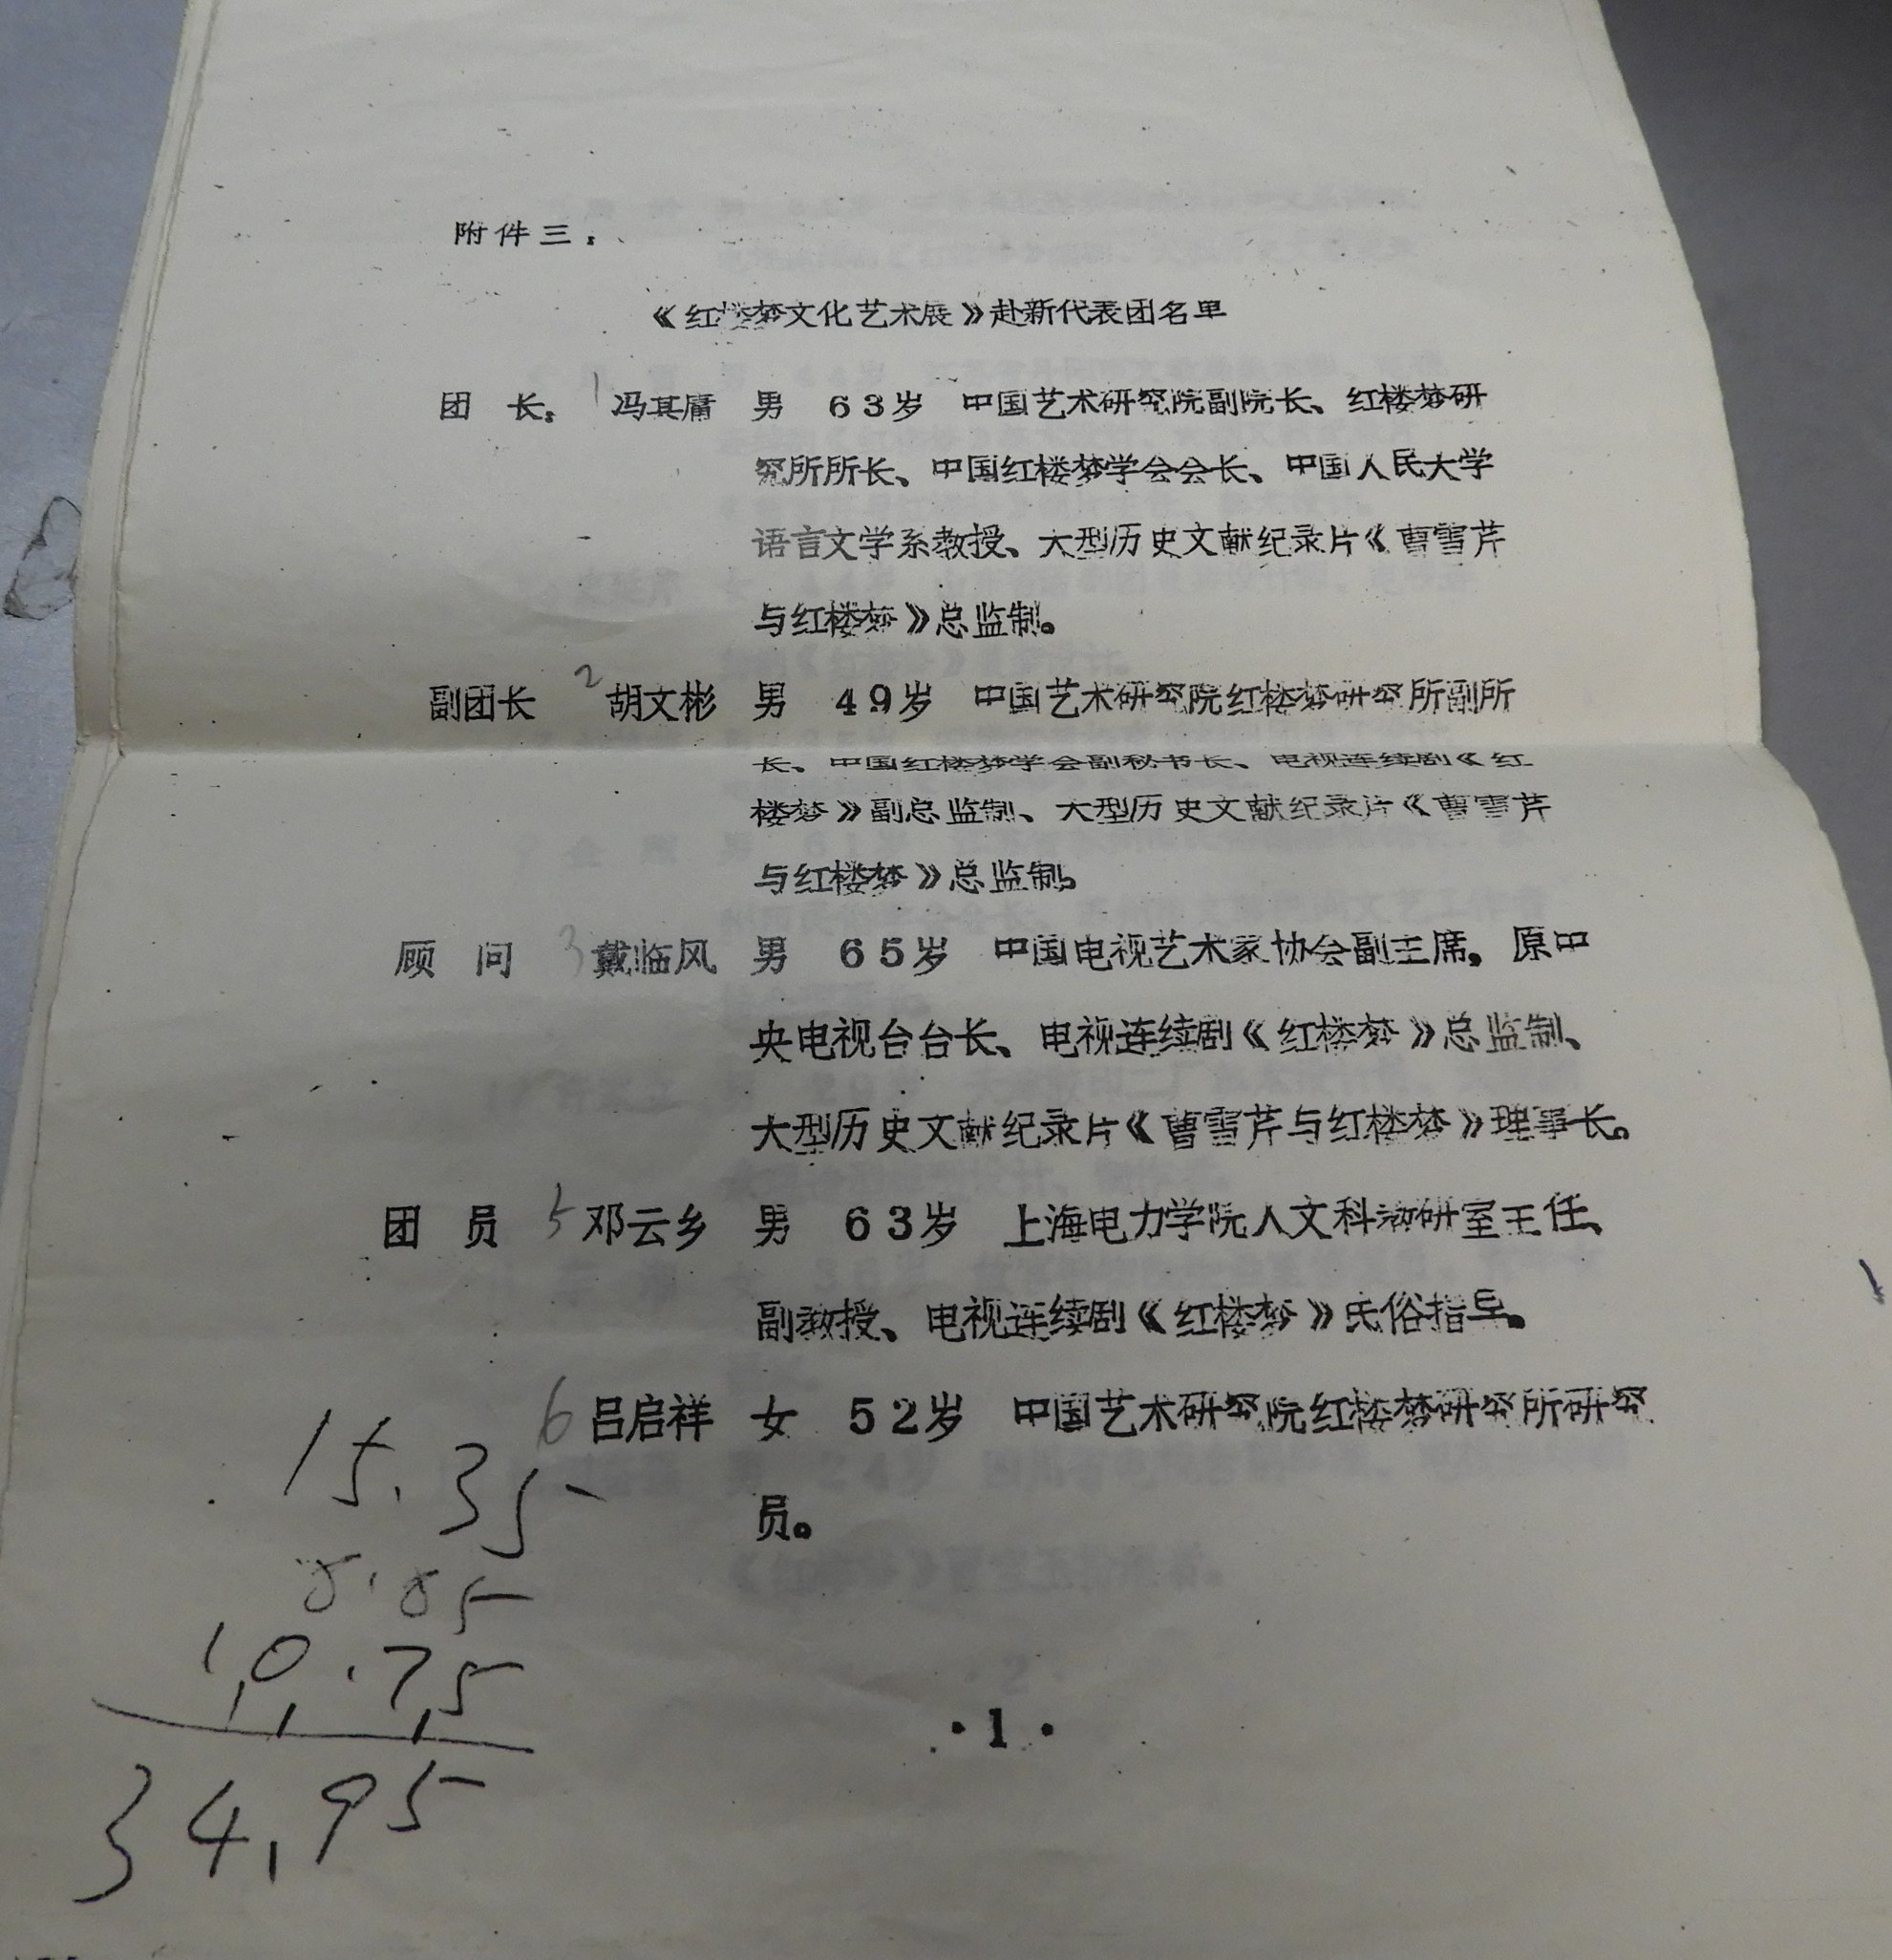 附件三：
《红楼梦文化艺术展》赴新代表团名单
团 长： 1 冯其庸 男 63岁 中国艺术研究院副院长、红楼梦研
究所所长、中国红楼梦学会会长、中国人民大学
语言文学系教授、大型历史文献纪录片《曹雪芹
与红楼梦》总监制。
副团长 2 胡文彬 男 49岁 中国艺术研究院红楼梦研究所副所
长、中国红楼梦学会副秘书长、电视连续剧《红
楼梦》副总监制、大型历史文献纪录片《曹雪芹
与红楼梦》总监制。
顾 问 3 戴临风 男 65岁 中国电视艺术家协会副主席，原中
央电视台台长、电视连续剧《红楼梦》总监制、
大型历史文献纪录片《曹雪芹与红楼梦》理事长。
团 员 5 邓云乡 男 63岁 上海电力学院人文科教研室主任、
副教授、电视连续剧《红楼梦》民俗指导。
6 吕启祥 女 52岁 中国艺术研究院红楼梦研究所研究
员。
15.35
8.85
10.75
34.95
·1·